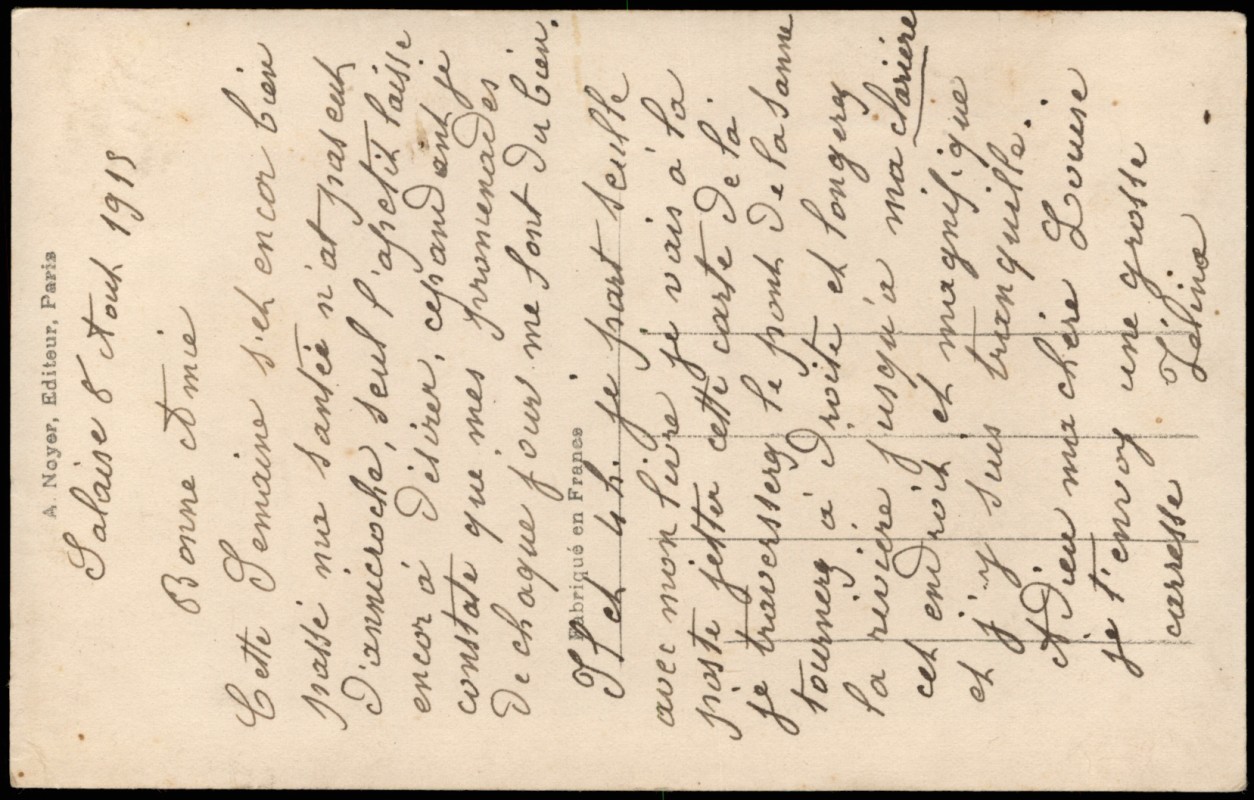 A. Noyer, Editeur, Paris
Salaise 8 Aout 1915
Bonne Amie
Cette Semaine s'et encor bien
passé ma santée n'at pas eut
d'annicroche, seul l'apetit laisse
encor à désirer, cepandant je
constate que mes promenades
de chaque jour me font du bien.
Fabriqué en France
Il et 4 h. je part seulle
avec mon livre je vais à la
poste jetter cette carte de là
je traversserg le pont de la Sanne
tournerg à droite et longerg
la rivière jusqu'a ma clarière
cet endroit et magnifique
et j'y suis tranquille.
Adieu ma chère Louise
je t'envoy une grosse
carresse Zélina